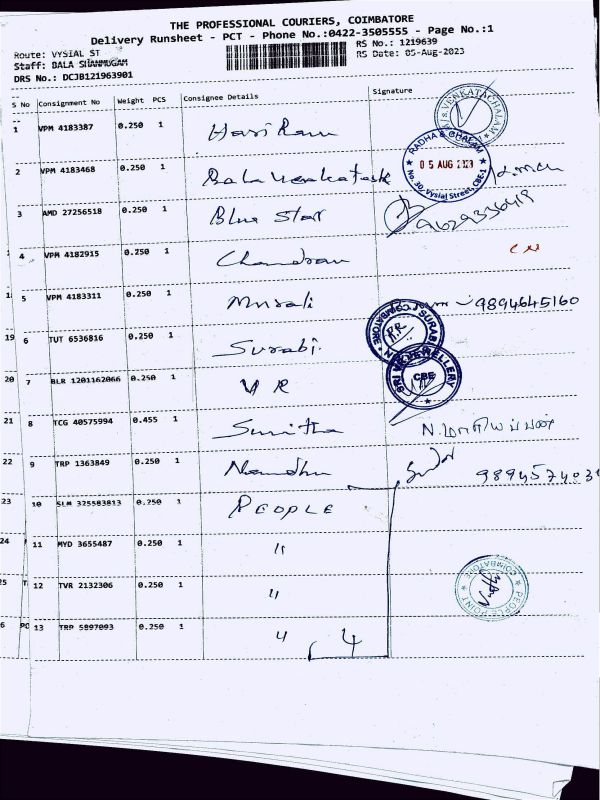 THE PROFESSIONAL COURIERS, COIMBATORE
Delivery Runsheet - PCT - Phone No.:0422-3505555 - Page No.:1
Route: VYSIAL ST
RS No.: 1219639
Staff: BALA SHANMUGAM
RS Date: 05-Aug-2023
DRS No.: DCJB121963901
S No Consignment No Weight PCS Consignee Details Signature
1 VPM 4183387 0.250 1 Hari Ram
VENKATACHALAM
2 VPM 4183468 0.250 1 Bala Venkatesh
RADHA & CHALAM
05 AUG 2023
No. 30, Vysial Street, CBE-1
3 AMD 27256518 0.250 1 Blue Star
4 VPM 4182915 0.250 1 Chandran
5 VPM 4183311 0.250 1 Murali 9894645160
19 6 TUT 6536816 0.250 1 Surabi
SURABI COIMBATORE
20 7 BLR 1201162066 0.250 1 V R
JEWELLERY
CBE
21 8 TCG 40575994 0.455 1 Sunitha
22 9 TRP 1363849 0.250 1 Nandhu
23 10 SLM 325583813 0.250 1 PEOPLE
24 11 MYD 3655487 0.250 1 "
25 12 TVR 2132306 0.250 1 "
PEOPLE POINT
COIMBATORE
13 TRP 5897093 0.250 1 " 4